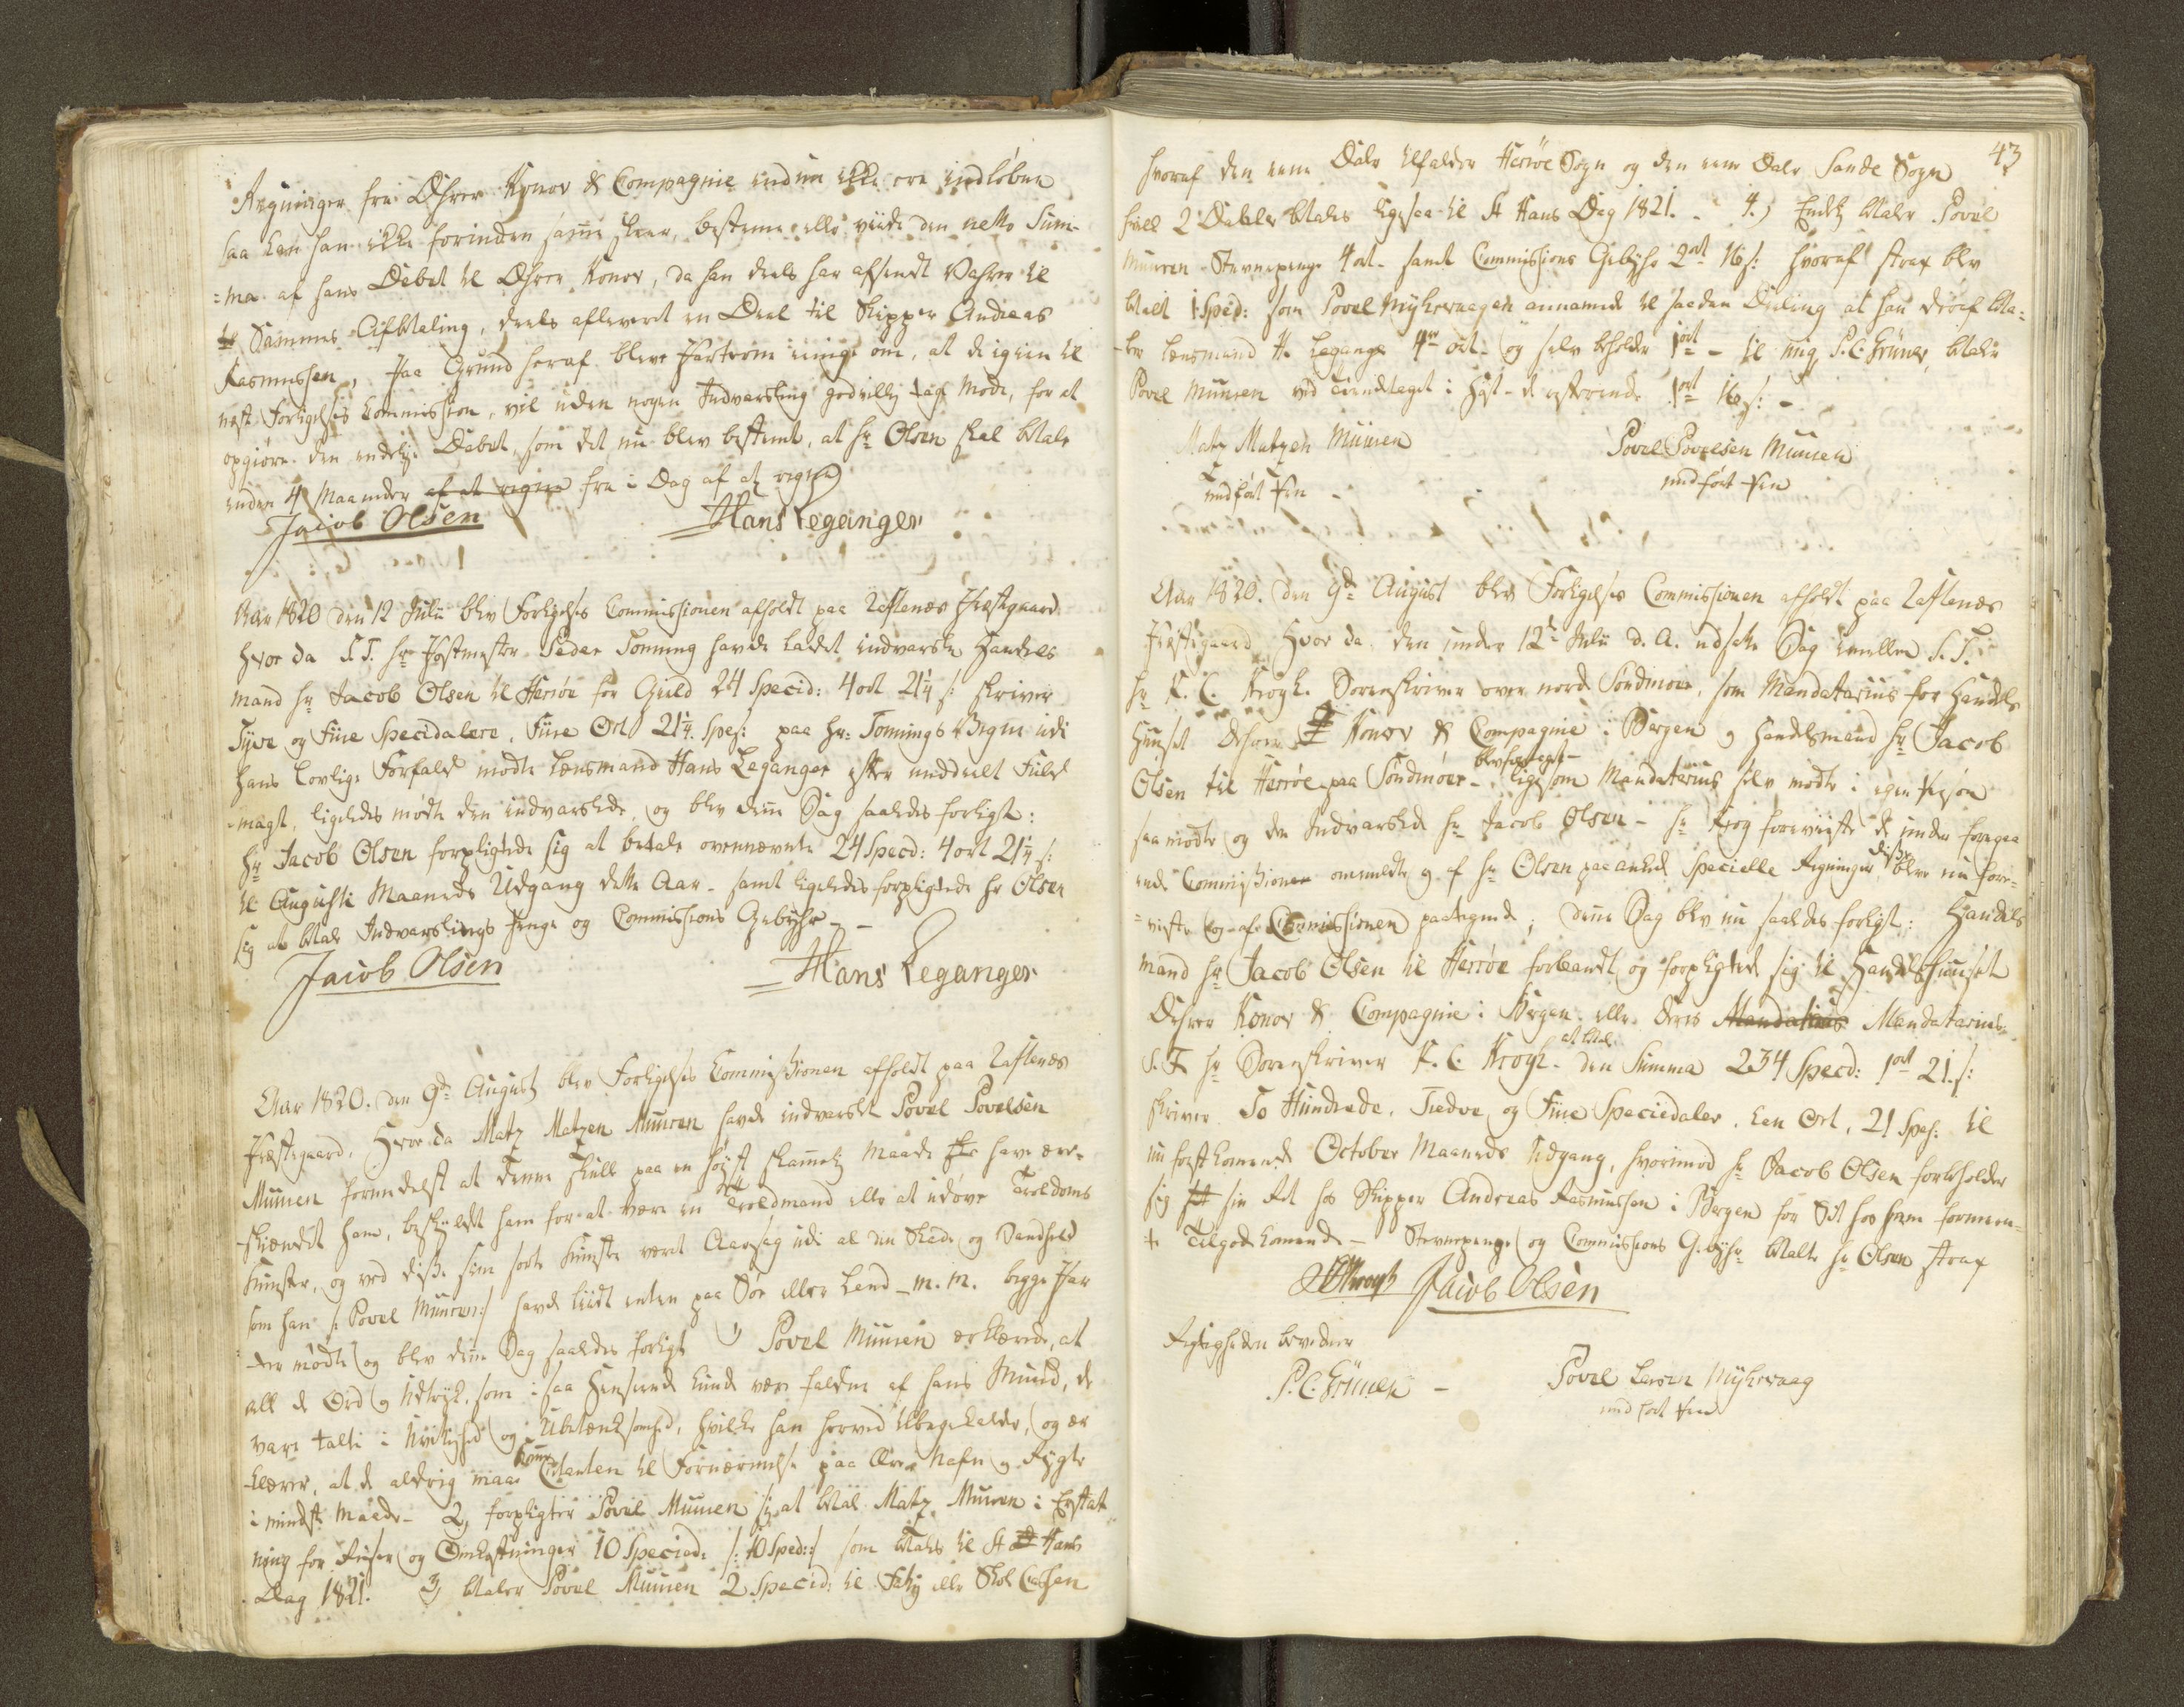 Regninger fra Dhrrer Konov & Compagnie endnu ikke ere indløbne
saa kan han ikke forinden samme skeer, bestemme eller viide den netto Sum-
=ma af hans Debet til Dhrrer Konov, da han deels har afsendt Vahrer til
Sammes Afbetaling, deels afleveret en Deel til Skipper Andreas
Rasmussen, Paa Grund heraf bleve Parterne eenige om, at de igien til
næste Forligelses Commission, vil uden nogen Indvarsling godvillig tage Møde, for at
opgiøre den endelige Debet, som det nu blev bestemt, at Hr Olsen skal betale
inden 4 Maaneder af at regne fra i Dag af at regne
Jacob Olsen Hans Leganger
Aar 1820 den 12 Julii blev Forligelses Commissionen afholdt paa Zaftenæs Præstegaard
hvor da S.T. Hr Postmester Peder Tonning havde ladet indvarsle Handels
mand Hr Jacob Olsen til Herrøe for Gield 24 Specid: 4 ort 21¼ s: skriver
Tyve og Fiire Speciedalere, Fiire Ort 21¼ Spes: paa Hr: Tonnings Vegne udi
hans lovlige Forfald mødte Lænsmand Hans Leganger efter meddeelt Fuld
magt, ligeledes mødte den indvarslede, og blev denne Sag saaledes forligt:
Hr Jacob Olsen forpligtede sig at betale ovennævnte 24 Specd: 4 ort 21¼ s:
til Augusti Maaneds Udgang dette Aar - samt ligeledes forpligtede Hr Olsen
sig at betale Indvarslings Penge og Commissions Gebyhr - -
Jacob Olsen Hans Leganger
Aar 1820. den 9de August blev Forligelses Commissionen afholdt paa Zaftenæs
Præstegaard, Hvor da Matz Matzen Muuren havde indvarslet Povel Povelsen
Muuren formedelst at denne skulle paa en høyst skammelig Maade have ære-
skiændet ham, beskyldt ham for at være en Troldmand eller at udøve Troldoms
Kunster, og ved disse sine sorte Kunster været Aarsag udi al den Skade og Vanheld
som han /: Povel Muuren :/ havde liidt enten paa Søe eller Land - m. m. begge Par
ter mødte og blev denne Sag saaledes forligt 1) Povel Muuren erklærede, at
all de Ord og Udtryk, som i saa Henseende kunde være faldne af hans Mund, de
vare talte i Ivrighed og Ubetænksomhed, hvilke han herved tilbagekalder, og er
klærer, at de aldrig maae komme Citanten til Fornærmelse paa Ære Nafn og Rygte
i mindste Maade - 2) forpligter Povel Muuren sig at betale Matz Muuren i Erstat
ning for Reiser og Omkostninger 10 Specied: /: 10 Sped: :/ som betales til St Hans
Dag 1821. 3) betaler Povel Muuren 2 Specid: til Fattig eller Skole Cassen
43
hvoraf den eene Daler tilfalder Herrøe Sogn og den eene Daler Sande Sogn
hvilke 2 Daler betales ligesaa til St Hans Dag 1821. - 4.) Endelig betaler Povel
Muuren Stevnepenge 4 ort - samt Commissions Gebyhr 2 ort 16 s: hvoraf strax blev
betalt 1 Spcd: som Povel Myklevaagen annammede til saadan Deeling at han deraf beta-
ler Lænsmand H. Leganger 4re ort - og selv beholder 1 ort - til mig P. C. Grüner, betaler
Povel Muuren ved Tiendetaget i Høst - de resterende 1 ort 16 s: -
Matz Matzen Muuren Povel Povelsen Muuren
med ført Pen - med ført Pen
Aar 1820. den 9de August blev Forligelses Commissionen afholdt paa Zaftenæs
Præstegaard, Hvor da den under 12te Julii d. A. udsatte Sag imellem S. T.
Hr F. C. Krogh Sorenskriver over nord Søndmøer, som Mandatarius for Handels
Huuset Dhrrer Konov & Compagnie i Bergen og Handelsmand Hr Jacob
Olsen til Herrøe paa Søndmøer - blev foretaget - ligesom Mandatarius selv mødte i egen Person
saa mødte og den Indvarslede Hr Jacob Olsen - Hr Krog foreviiste de under foregaa
ende Commissioner ommeldte og af Hr Olsen paaankede Specielle Regninger, disse bleve nu fore-
=viste og af Commissionen paategnede; denne Sag blev nu saaledes forligt: Handels
mand Hr Jacob Olsen til Herrøe forbandt og forpligtede sig til Handelshuuset
Dhrrer Konov & Compagnie i Bergen eller deres Mandatarius Mandatarius
S. T. Hr Sorenskriver F. C. Krogh - at betale den Summa 234 Specd: 1 ort 21 s:
skriver To Hundrede, Tredve og Fiire Speciedaler, Een Ort, 21 Spes: til
nu først kommende October Maaneds Udgang, hvorimod Hr Jacob Olsen forbeholder
sig sin Ret hos Skipper Andreas Rasmussen i Bergen for Sit hos ham formeen-
te Tilgodekommende - Stevnepenge og Commissions Gebyhr betalte Hr Olsen strax
FCKrogh Jacob Olsen
Rigtigheden bevidner
P. C. Grüner - Povel Larsen Myklevaag
med ført Pen